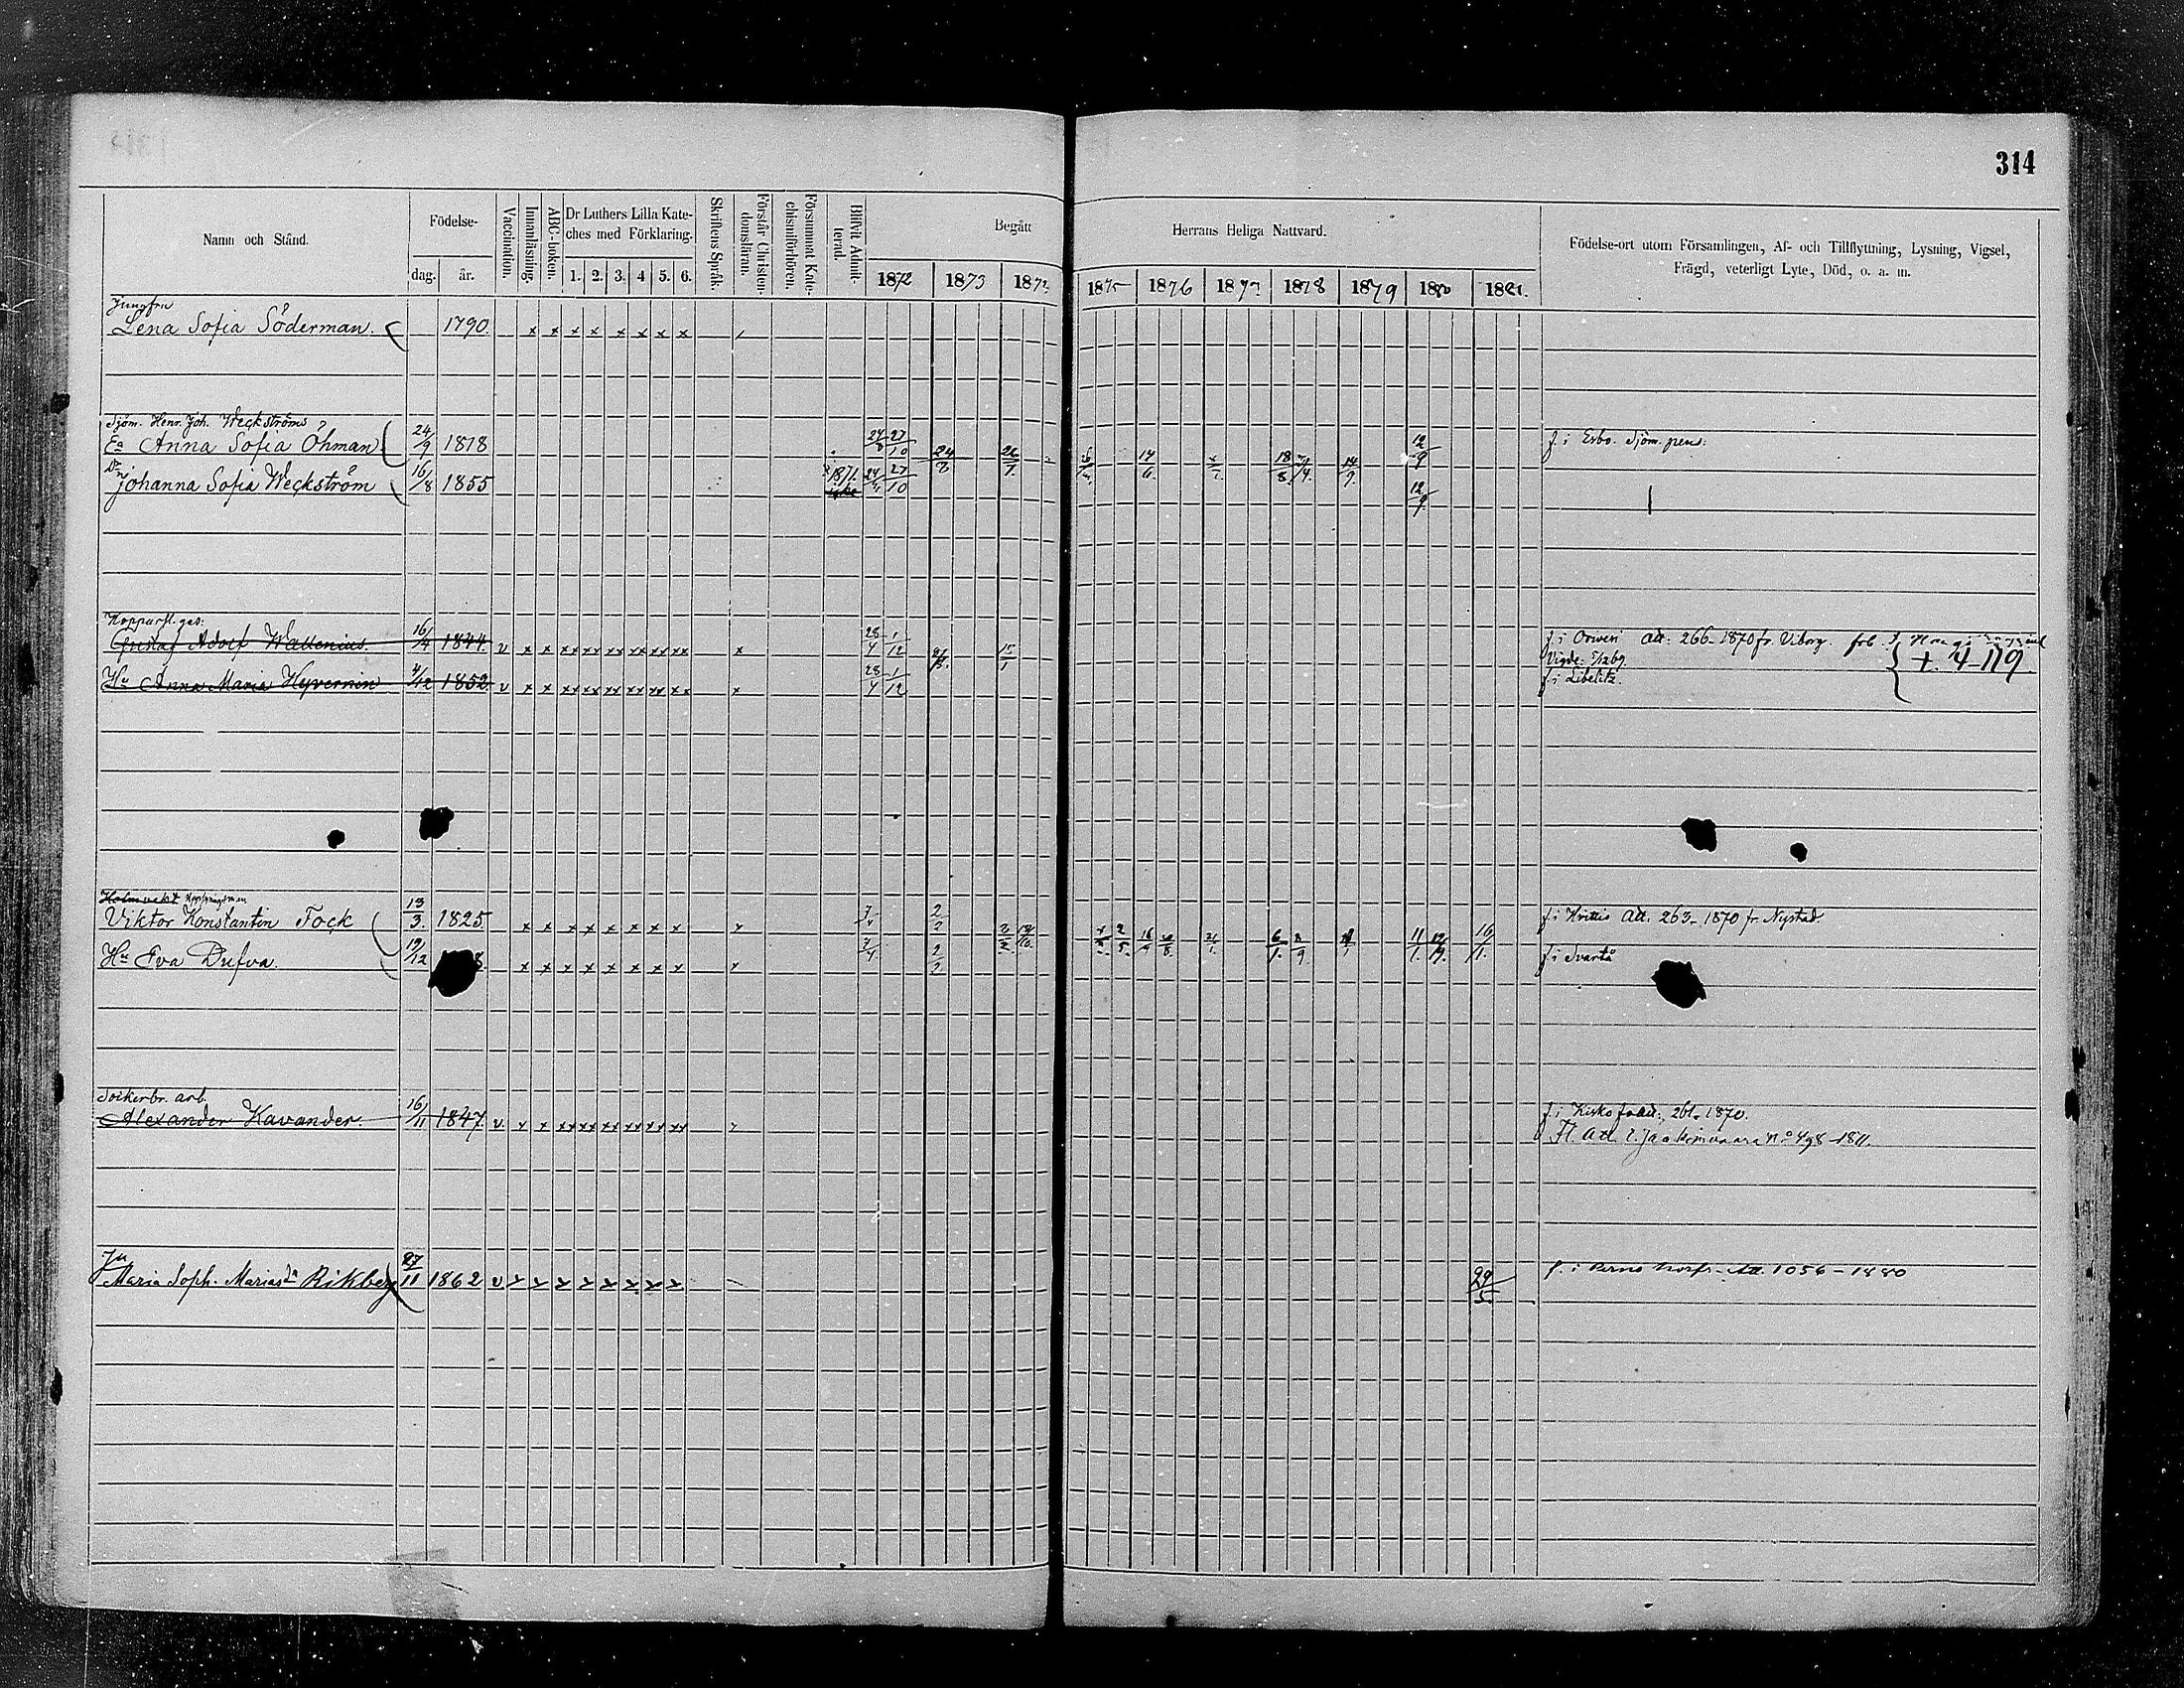 314
Namn och Stånd.
Födelse-
dag. år.
Vaccination.
Innanläsning.
ABC-boken.
Dr Luthers Lilla Kate-
ches med Förklaring.
1. 2. 3. 4 5. 6.
Skriftens Språk.
Förstår Christen-
domsläran.
Försummat Kate-
chismiförhören.
Blifvit Admit-
terad.
Begått Herrans Heliga Nattvard.
1872 1873 187 1875 1876 1877 1878 1879 1880 1881.
Födelse-ort utom Församlingen, Af- och Tillflyttning, Lysning, Vigsel,
Frägd, veterligt Lyte, Död, o. a. m.
Jungfru
Lena Sofia Söderman. 1790. x x x x x x x x
Sjöm. Henr. Joh. Weckströms
Ea Anna Sofia Öhman 24/9 1818 27/10 24/8 26/7 14/6 18/8 14/9 12/9 f. i Esbo. Sjöm. pens:
Dr Johanna Sofia Weckström 16/8 1855 1871. 27/10 12/9
Kopparsl. ges:
Gustaf Adolf Wallenius. 16/4 1844. v x x xx xx xx xx xx xx x 28/4 1/12 15/1 f. i Oriwesi att: 266-1870 fr. Viborg.
Vigde: 5/12 69.
Hu Anna Maria Hyvernin 4/12 1852. v x x xx xx xx xx xx xx x 28/4 1/12 f. i Libelitz. + 4 119
Viktor Konstantin Fock 13/3. 1825. x x x x x x x x x f. i Hvittis Att. 263-1870 fr. Nystad
Hu Eva Dufva. 19/12 x x x x x x x x x 2/5. 6/1. 8/9 11/1. 16/1. f. i Svartå
Sockerbr. arb.
Alexander Kavander. 16/11 1847. v. x x xx xx xx xx xx xx f. i Kisko att: 261-1870.
Fl. Att. t. Jaakimvaara No 498-1811.
Ju
Maria Soph. Mariasdr Rikberg 27/11 1862 v x x x x x x x x 29/5. f. i Perno Att. 1056-1880